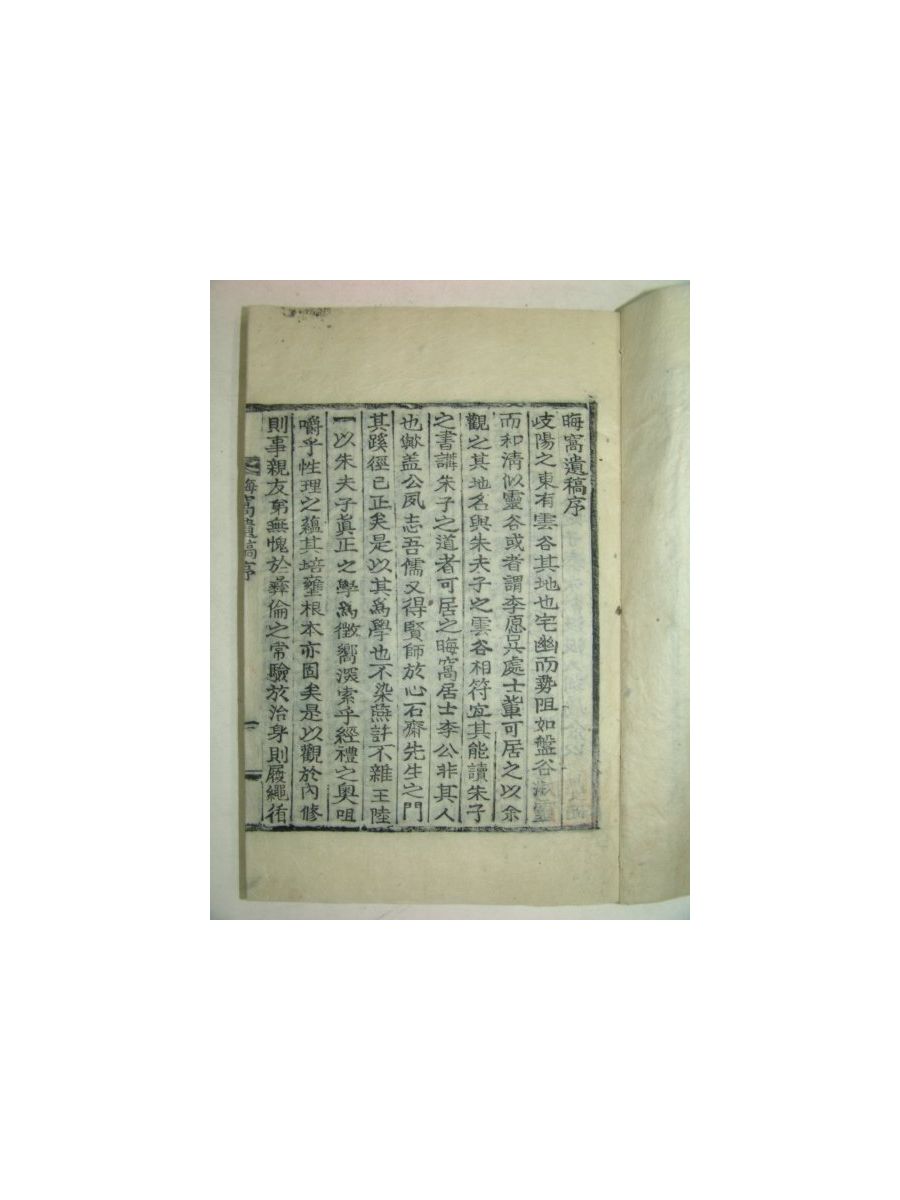 晦窩遺稿序
歧陽之東有雲谷其地也宅幽而勢阻如盤谷淑靈
而和清似靈谷或者謂李愿呉處士軰可居之以余
觀之其地名與朱夫子之雲谷相符宜其能讀朱子
之書講朱子之道者可居之晦窩居士李公非其人
也歟盖公夙志吾儒又得賢師於心石齋先生之門
其蹊徑已正矣是以其爲學也不染燕許不雜王陸
一以朱夫子眞正之學爲徵嚮深索乎經禮之奧咀
嚼乎性理之蘊其培壅根本亦固矣是以觀於內修
則事親友弟無愧於彜倫之常驗於治身則履繩循
晦窩遺稿序
一